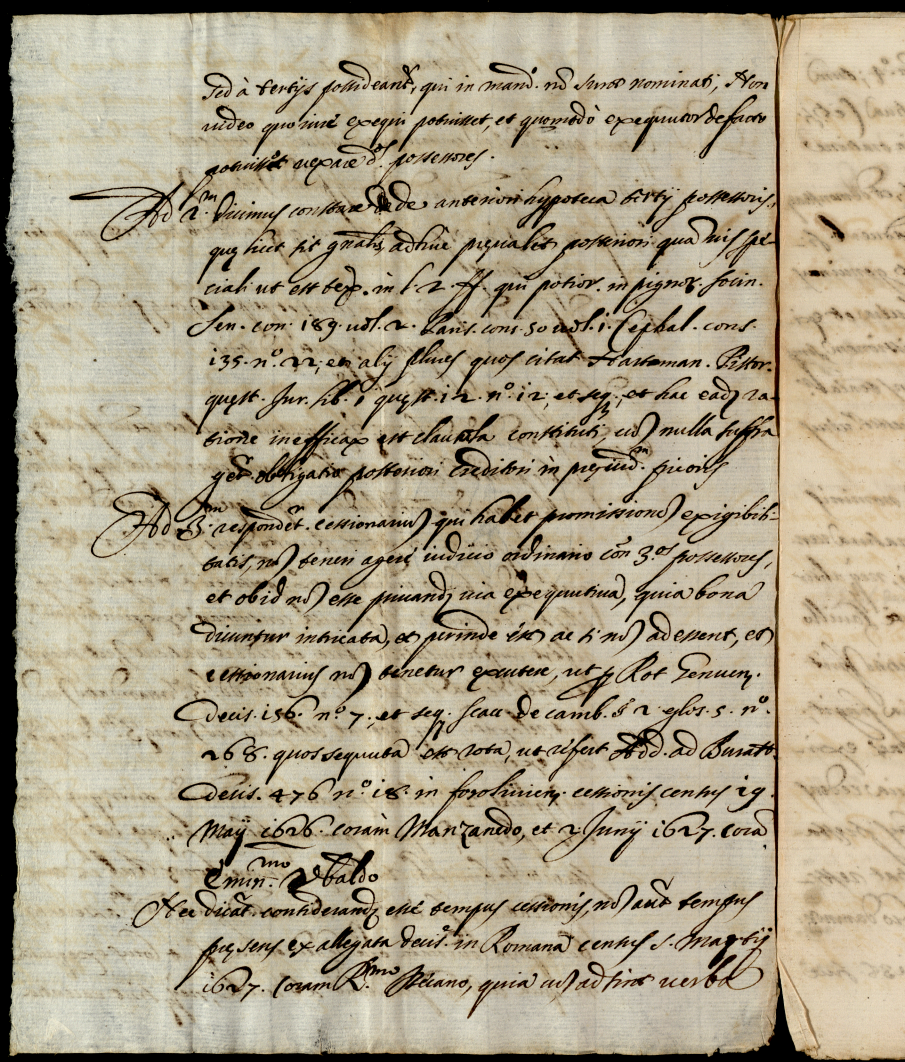 sed à tertijs possideant.r, qui in mand.o nō sunt nominati, Non
video quo iure exequi potuisset, et quomodò exequutor de facto
potuisset vexare d.os possessores.
Ad 2.m dicimus constare de anteriori hypoteca tertij possessoris,
quę licet sit gńalis, adhuc pręualet posteriori quamuis spe-
ciali ut est tex. in l. 2 ff. qui potior. in pignor. Socin.
Sen. con. 189. vol. 2. Paris. cons. 50 vol. 1. Cephal. cons.
135. n.o 22, et alij plures quos citat Hartman. Pistor.
quęst. Jur. lib. 1 quęst. 12. n.o 12, et seq., et hac ead. ra-
tione inefficax est clausula constituti, cū nulla suffra
get.r obligatio posteriori creditori in pręiud.m prioris
Ad 3.m respondet.r cessionariū qui habet promissionē exigibili-
tatis, nō teneri agere iudicio ordinario con 3.os possessores,
et ob id nō esse priuand. via exequutiua, quia bona
dicuntur intricata, et perinde est ac si nō adessent, et
cessionarius nō tenetur excutere, ut p Rot Genuen.
Decis. 156. n.o 7., et seq. Scacc. de camb. § 2 glos. 5. n.o
268. quos sequuta est rota, ut refert Add. ad Buratt.
Decis. 476 n.o 18. in foroliuien. cessionis census 19
Maij 1626. coram Manzanedo, et 2 Junij 1627. corā
Emin.mo Vbaldo
Nec dicat.r considerand. esse tempus cessionis, nō aūt tempus
pręsens ex allegata decis.e in Romana census 5. Martij
1627. Coram R.mo Pirouano, quia cū adsint verba